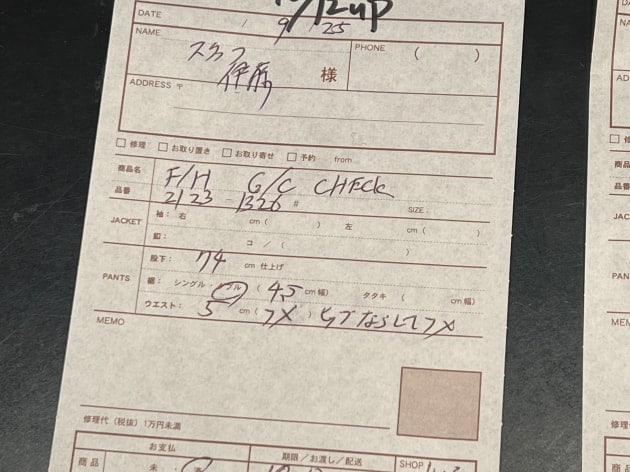 10/12up
DATE / 9 / 25
NAME スタッフ 伊藤 様
PHONE ( )
ADDRESS 〒
□ 修理 □ お取り置き □ お取り寄せ □ 予約 from
商品名 F/H G/C CHECK
品番 2123 - 1326 # SIZE :
JACKET 袖: 右 cm ( ) 左 cm ( )
釦: コ / ( )
PANTS 股下: 74 cm 仕上げ
裾: シングル・ダブル ( 4.5 cm幅) タタキ ( cm幅)
ウエスト: 5 cm ( ツメ ) ヒップならしてツメ
MEMO
修理代 (税抜) 1万円未満
お支払 期限/お渡し/配送 SHOP
商品 未